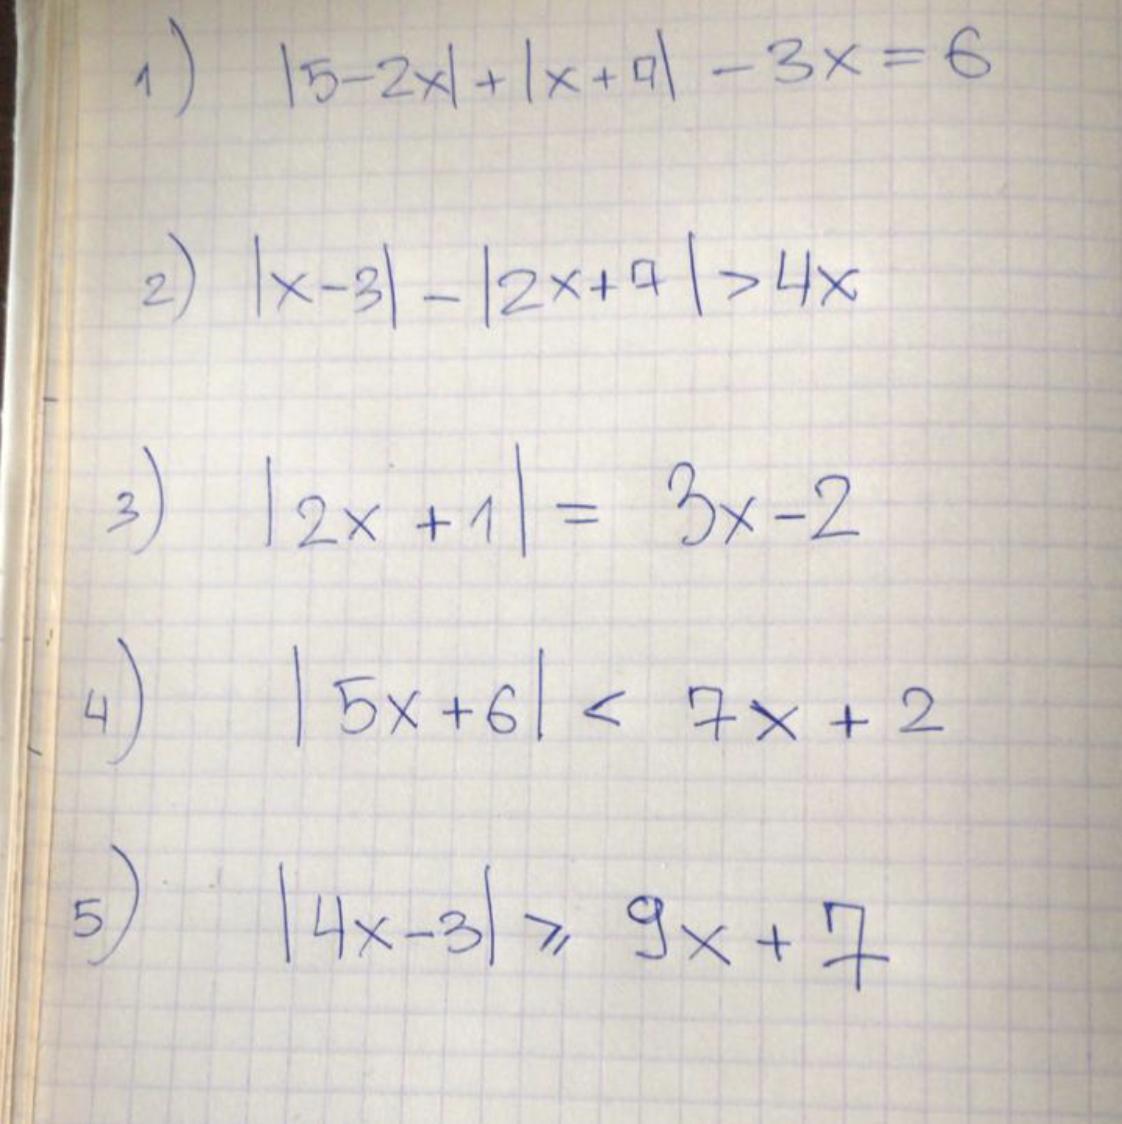 1) |5-2x|+|x+7| -3x=6
2) |x-3|-|2x+7|>4x
3) |2x+1|= 3x-2
4) |5x+6|< 7x+2
5) |4x-3|⩾ 9x+7